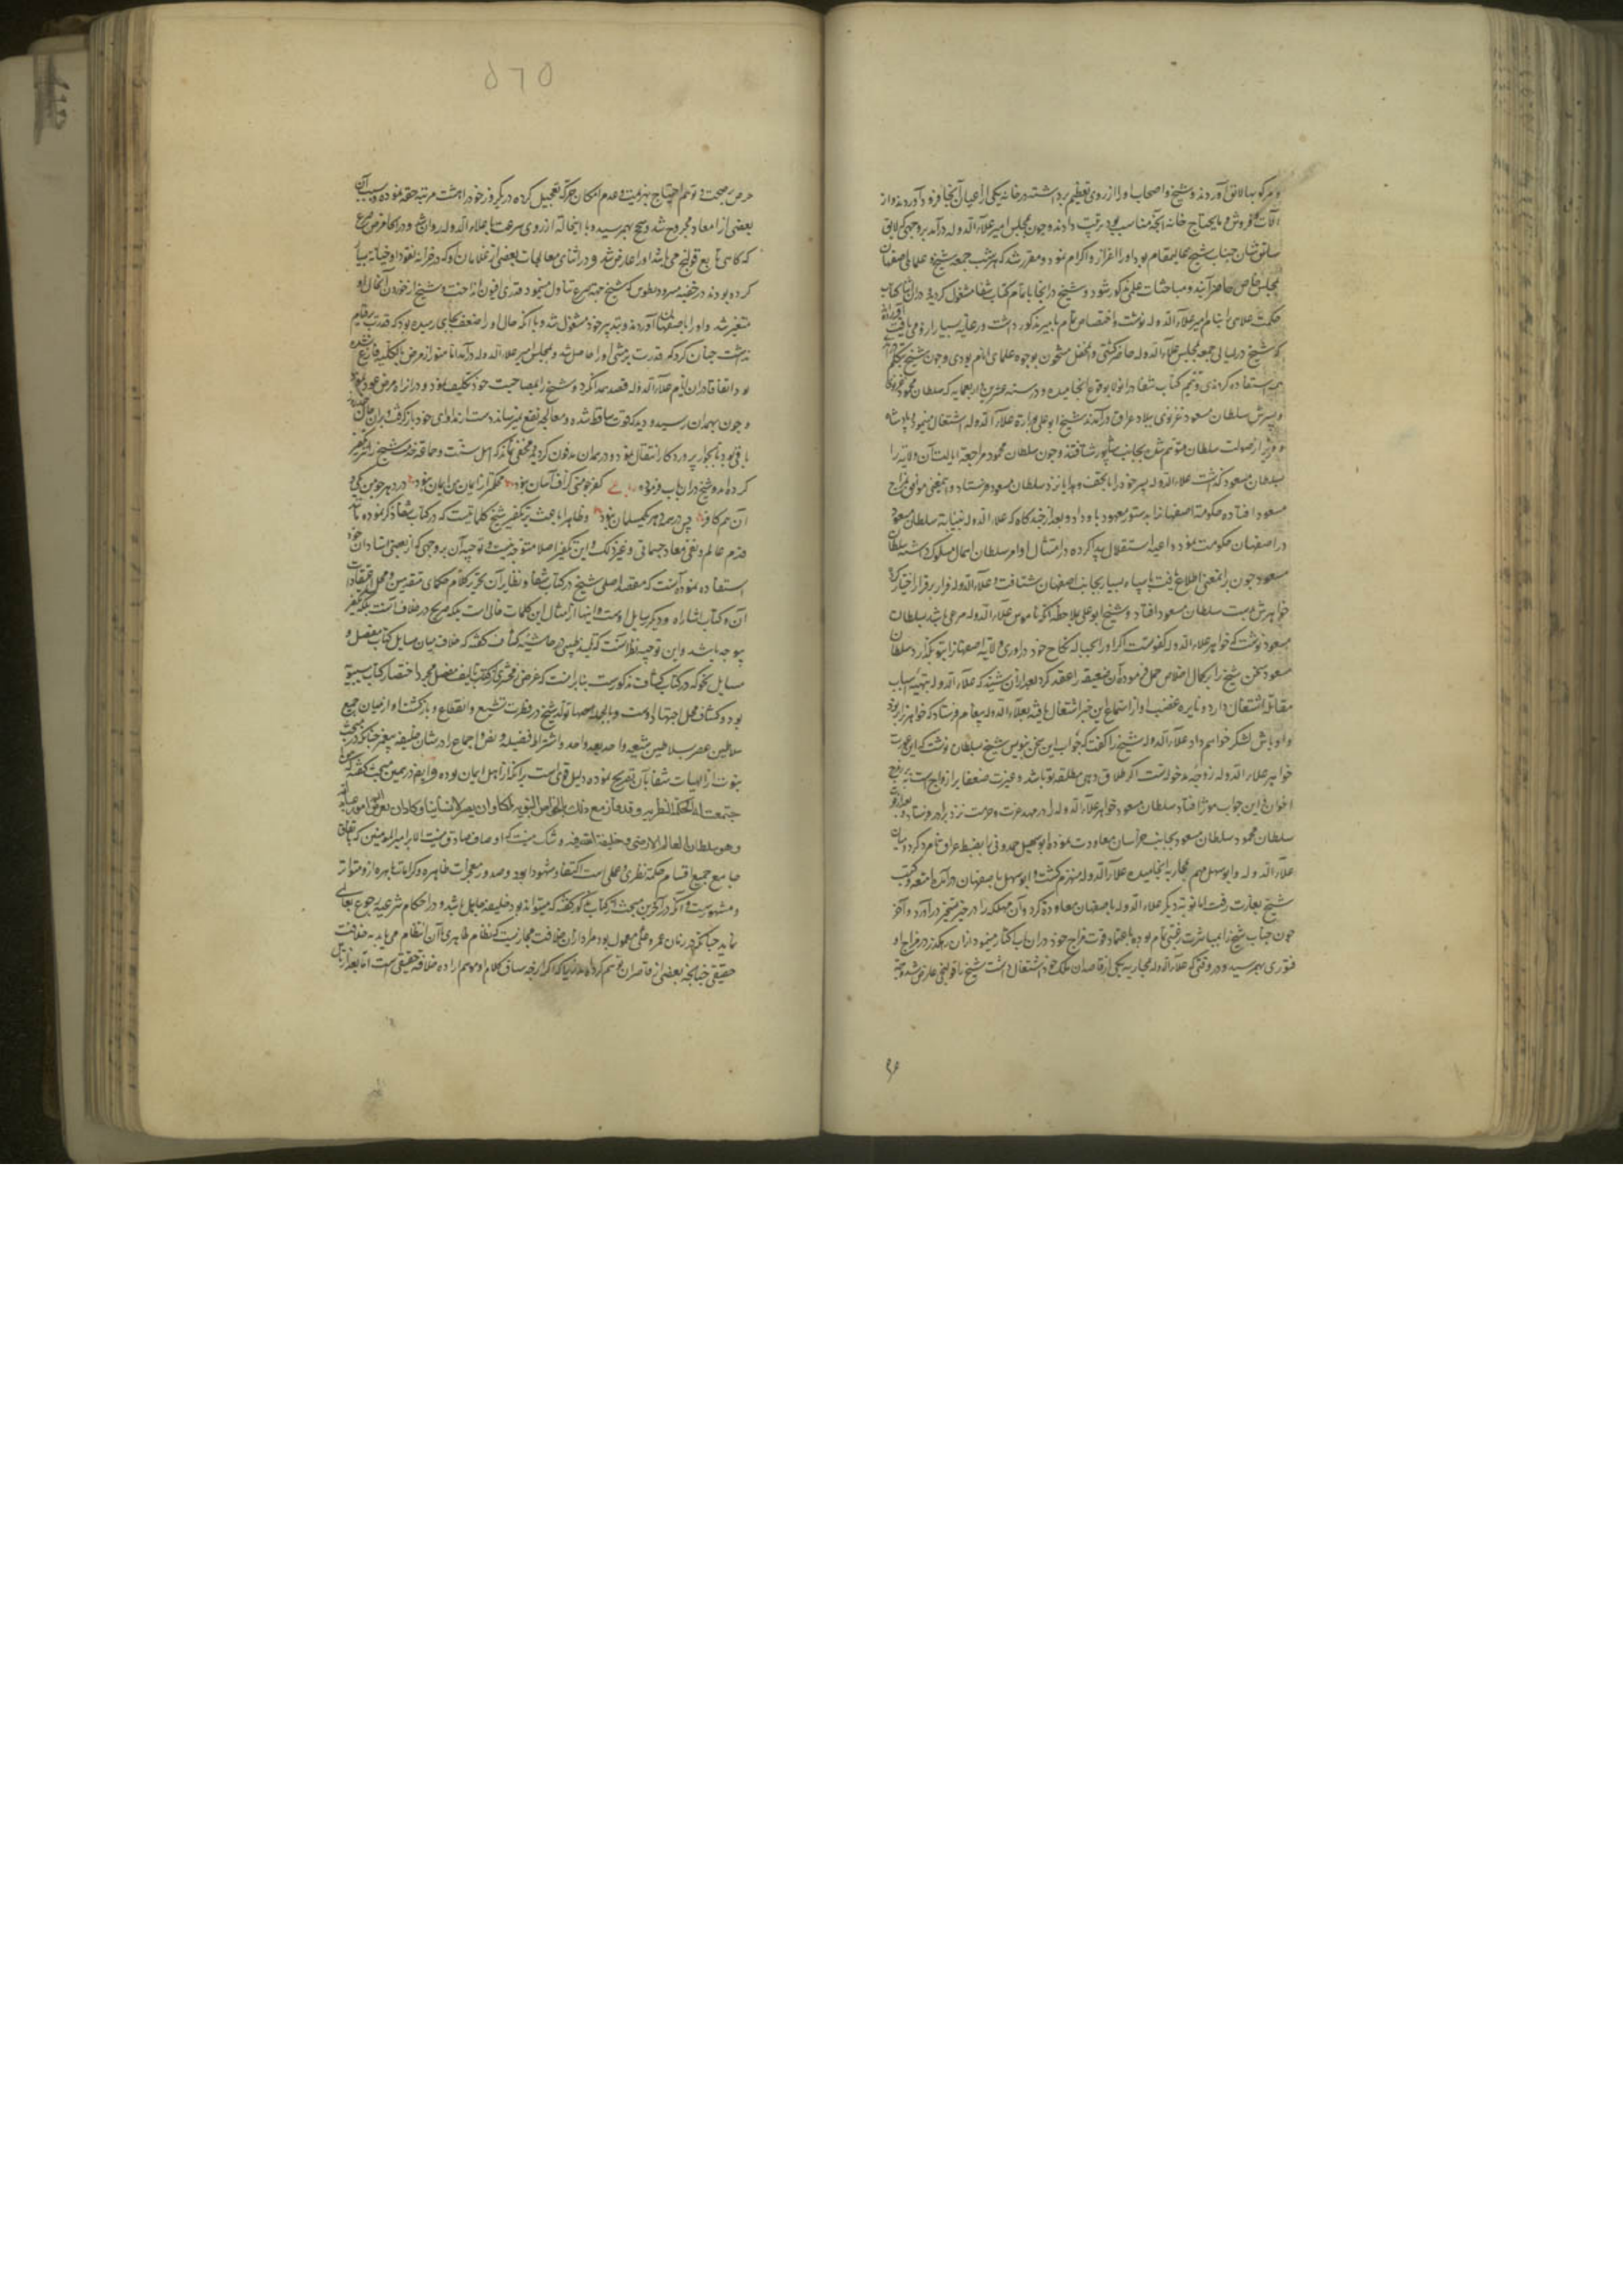 و مرکوبها لایق آوردند و شیخ و اصحاب او را از روی تعظیم برداشته در خانه یکی از اعیان آنجا فرود آوردند و از
آلات و فروش و ما یحتاج خانه آنچه مناسب بود ترتیب دادند و چون بمجلس امیر علاء الدوله درآمد بروجهی که لایق
شان جناب شیخ بود او را اعزاز و اکرام نمود و مقرر شد که هر شب جمعه شیخ و علمای اصفهان
بمجلس خاص حاضر آیند و مباحثات علمی مذکور شود و شیخ در آنجا باتمام کتاب شفا مشغول گردید و در آن اثنا کتاب
حکمت علائی را بنام امیر علاء الدوله نوشت و اختصاص تمام بامیر مذکور داشت و رعایت بسیار ازو می یافت
که شیخ در لیالی جمعه بمجلس علاء الدوله حاضر گشتی و محفل مشحون بوجود علمای انام بودی و چون شیخ تکلم
همه استفاده کردندی و تتمیم کتاب شفا در آنولا بوقوع انجامیده و در سنه عشرین و اربعمایه که سلطان محمود غزنوی
و پسرش سلطان مسعود غزنوی ببلاد عراق درآمدند شیخ ابو علی بوزارة علاء الدوله اشتغال مینمود و پادشاه
و وزیر از صولت سلطان متوهم شده بجانب شاپور شتافتند و چون سلطان محمود مراجعة ایالت آن ولایة را
بسلطان مسعود گذاشت علاء الدوله پسر خود را با تحف و هدایا نزد سلطان مسعود فرستاد و اینمعنی موافق مزاج
مسعود افتاده حکومة اصفهانرا بدستور معهود باو داد و بعد از چندگاه که علاء الدوله بنیابة سلطان مسعود
در اصفهان حکومت نمود داعیه استقلال پیدا کرده در امتثال اوامر سلطان اهمال مسلوک داشت سلطان
مسعود چون برینمعنی اطلاع یافت با سپاه بسیار بجانب اصفهان شتافت و علاء الدوله فرار بر قرار اختیار کرد
خواهرش بدست سلطان مسعود افتاد و شیخ ابو علی بملاحظه آنکه ناموس علاء الدوله مرعی باشد بسلطان
مسعود نوشت که خواهر علاء الدوله کفو تست اگر او را بحباله نکاح خود درآوری ولایة اصفهانرا بتو بگذارد سلطان
مسعود سخن شیخ را بر کمال اخلاص حمل فرموده آن ضعیفه را عقد کرد بعد از آن شنید که علاء الدوله بتهیه اسباب
مقاتله اشتغال دارد و نایره غضب او از استماع این خبر اشتعال یافته بعلاء الدوله پیغام فرستاد که خواهرت را
واوباش لشکر خواهم داد علاء الدوله شیخ را گفت که جواب این سخن بنویس شیخ بسلطان نوشت که این عورت
خواهر علاء الدوله زوجه مدخوله تست اگر طلاق دهی مطلقه تو باشد و غیرت ضعفا بر ازواج است نه بر
اخوان و این جواب مؤثر افتاد سلطان مسعود خواهر علاء الدوله را در مهد عزت و حرمت نزد برادر فرستاد
سلطان محمود سلطان مسعود بجانب خراسان معاودت نموده ابو سهل حمدونی را بضبط عراق نامزد کرد و میان
علاء الدوله و ابو سهل مهم بمحاربه انجامیده علاء الدوله منهزم گشت و ابو سهل باصفهان درآمده امتعه و کتب
شیخ بغارت رفت اما نوبة دیگر علاء الدوله باصفهان معاودة کرد و آن مملکت را در حیز تسخیر درآورد و آخر
چون جناب شیخ را بمباشرت رغبتی تمام بوده باعتماد قوت مزاج خود در آن باب اکثار مینمود از آن رهگذر در مزاج او
فتوری بهم رسید و در وقتی که علاء الدوله بمحاربه یکی از قاصدان ملک خود اشتغال داشت شیخ را قولنجی عارض شد و
۵۶۵
حرص بر صحت و توهم احتیاج بهزیمت و عدم امکان حرکة تعجیل کرده در یکروز خود را هشت مرتبه حقنه نموده و بسبب آن
بعضی از امعا مجروح شد و سحج بهم رسید و با اینحالة از روی سرعت با علاء الدوله روان شد و در آنجا مرض صرع
که گاهی تابع قولنج می باشد او را عارض شد و در اثنای معالجات بعضی از غلامان او که در خزانه نقود او خیانة بسیار
کرده بودند در خفیه معجون مثرودیطوس که شیخ جهة صرع تناول مینمود قدری افیون انداختند و شیخ از خوردن آن حال او
متغیر شد و او را باصفهان آوردند و بتدبیر خود مشغول شد و با آنکه حال او را ضعف بجایی رسیده بود که قدرت بر قیام
نداشت چنان کرد که قدرت بر مشی او را حاصل شد و بمجلس امیر علاء الدوله درآمد اما هنوز از مرض بالکلیه فارغ نشده
بود اتفاقا در آن ایام علاء الدوله قصد همدان کرد و شیخ را بمصاحبت خود تکلیف نمود و در راه مرض عود نمود
و چون بهمدان رسید و دید که قوت ساقط شده و معالجه نفع نمیرساند دست از مداوای خود باز گرفت و بر آن حال
باقی بود تا بجوار پروردگار انتقال نمود و در همدان مدفون گردید و مخفی نماند که اهل سنت و جماعت شیخ را تکفیر
کرده اند و شیخ در آن باب فرموده رباعی کفر چو منی گزاف و آسان نبود محکمتر از ایمان من ایمان نبود در دهر چو من یکی و
آن هم کافر پس در همه دهر یک مسلمان نبود و ظاهرا باعث بر تکفیر شیخ کلماتیست که در کتاب شفا ذکر نموده تا
قدم عالم و نفی معاد جسمانی و غیر ذلک و این تکفیر اصلا متوجه نیست و توجیه آن بروجهی که از بعضی استادان خود
استفاده نموده آنست که مقصد اصلی شیخ در کتاب شفا و نظایر آن تحریر کلام حکمای متقدمین و محمل اعتقادات
آن و کتاب اشارات و دیگر رسایل اوست و اینها از امثال این کلمات خالی است بلکه صریح در خلاف آنست تکفیر
موجه باشد و این توجیه نظیر آنست که در حاشیه کشاف گفته که خلاف میان مسایل کتاب مفصل و
مسایل نحو که در کتاب کشاف مذکورست بنابر آنست که غرض زمخشری از تالیف مفصل مجرد اختصار کتاب سیبویه
بود و کشاف محل اجتهاد اوست و بالجمله تولد شیخ در فطرت تشیع و انقطاع و بازگشت او از میان جمیع
سلاطین عصر بسلاطین شیعه واحد بعد واحد و اشتراط افضلیة و نص و اجماع در شان خلیفه پیغمبر چنانکه در مبحث
نبوت از الهیات شفا بآن تصریح نموده دلیل قوی است بر آنکه از اهل ایمان بوده و ایضا در همین مبحث گفته که من
اجتمعت له الحکمة النظریه و قد فاز مع ذلک بالخواص النبویه کاد ان یصیر ربا انسانیا و کاد ان
و هو سلطان العالم الارضی و خلیفة الله فیه و شک نیست که اوصاف صادق نیست الا بر امیر المومنین که باتفاق
جامع جمیع اقسام حکمة نظری و عملی است و صدور معجزات ظاهره و کرامات باهره ازو متواتر
و مشهورست و آنکه در آخر این مبحث از کتاب مذکور گفته که میتواند بود خلیفه جاهل باشد و در احکام شرعیه رجوع بعالمی
نماید چنانکه در زمان عمر و علی معمول بود مراد از آن خلافت مجازیست که نظام ظاهری با آن انتظام می یابد نه خلافت
حقیقی چنانچه بعضی از قاصران توهم کرده اند زیرا که اگرچه سیاق کلام او موهم اراده خلافة حقیقی است اما بعد از تامل